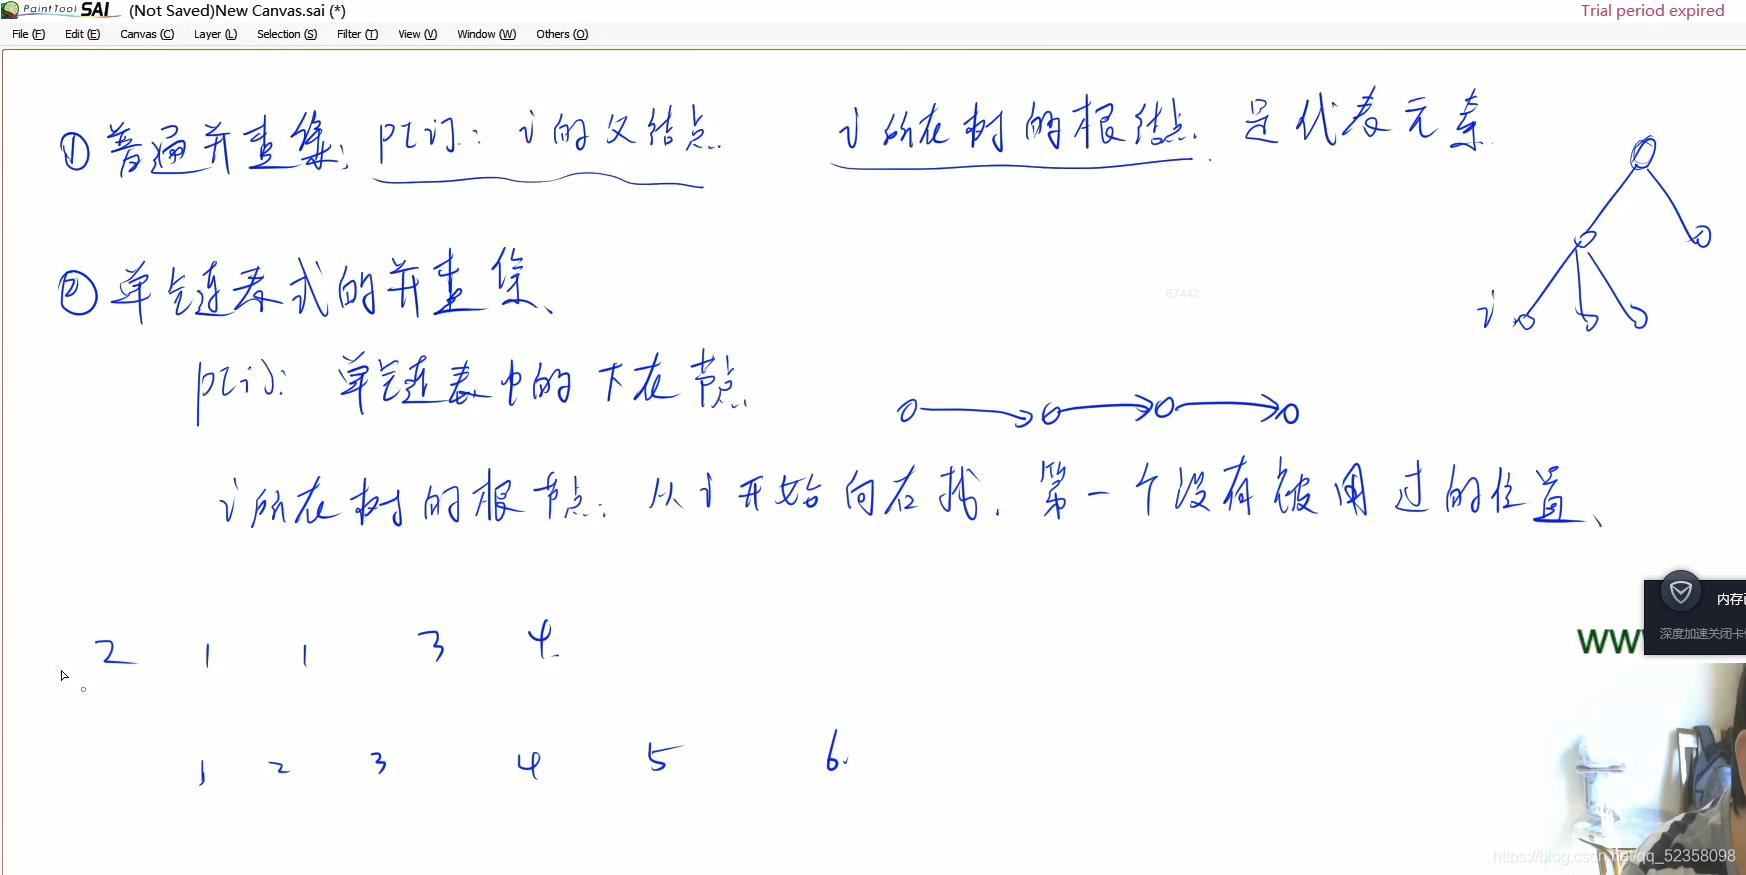 PaintTool SAI (Not Saved)New Canvas.sai (*) Trial period expired
File (F) Edit (E) Canvas (C) Layer (L) Selection (S) Filter (T) View (V) Window (W) Others (O)
① 普通并查集: p[i]: i的父结点 i所在树的根结点. 是代表元素
② 单链表式的并查集、
67442
i
p[i]: 单链表中的下在节点
i所在树的根节点: 从i开始向右找. 第一个没有被用过的位置、
2 1 1 3 4
内存
深度加速关闭卡
1 2 3 4 5 6.
https://blog.csdn.net/qq_52358098